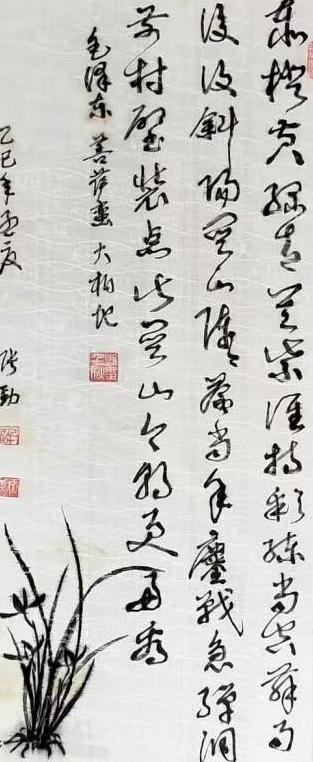 赤橙黄绿青蓝紫谁持彩练当空舞雨
后复斜阳关山阵阵苍当年鏖战急弹洞
前村壁装点此关山今朝更好看
毛泽东菩萨蛮大柏地
乙巳年孟夏 张劲